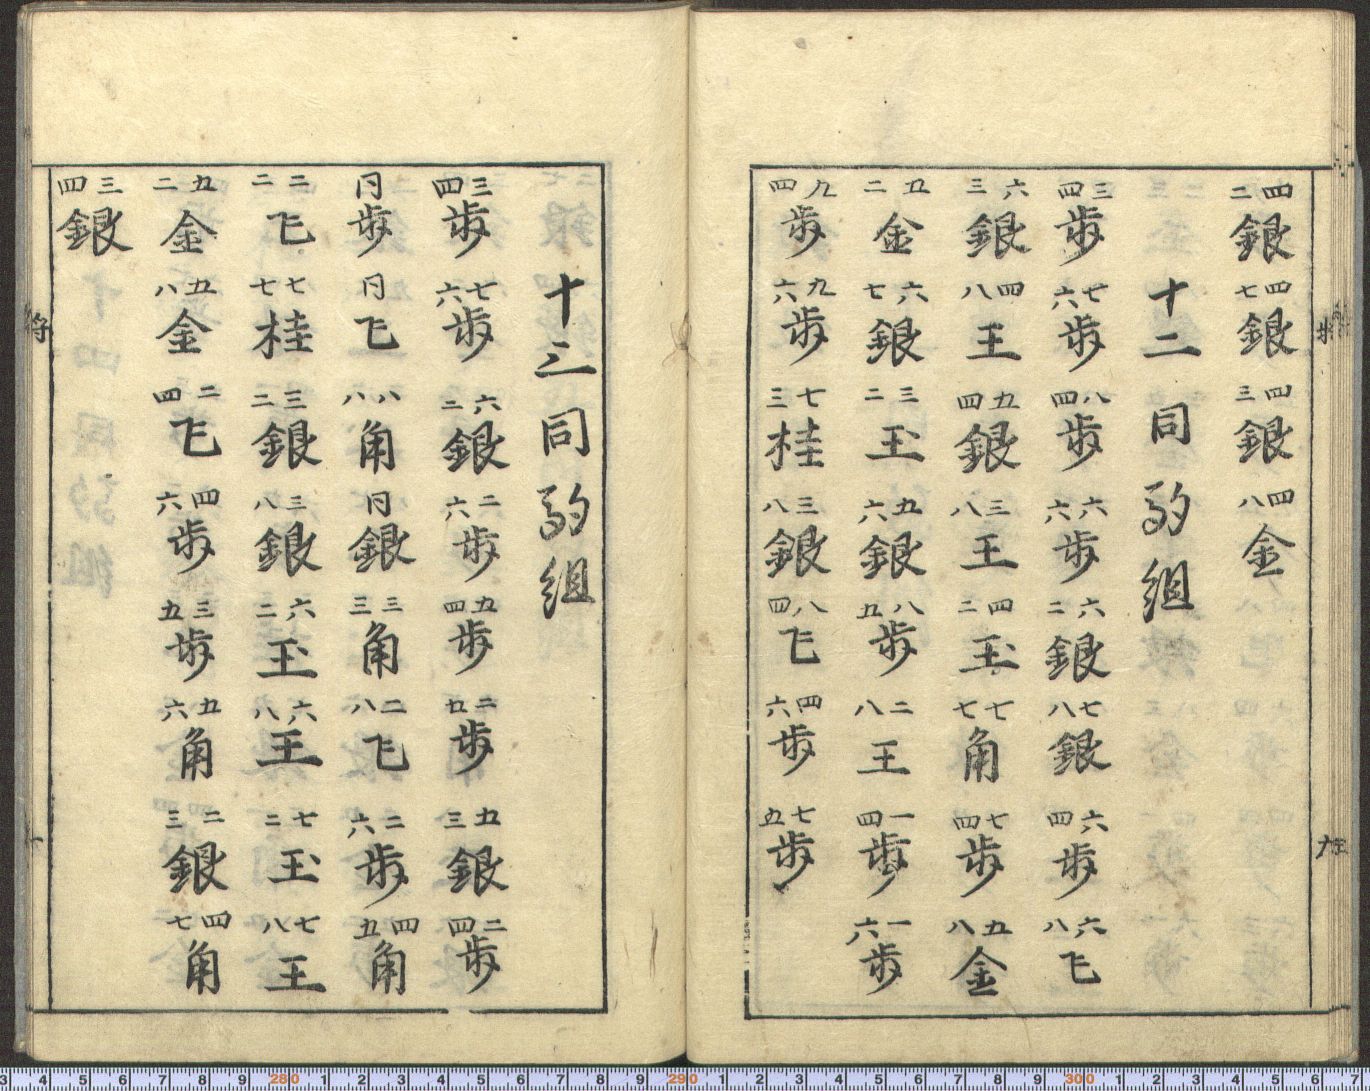 四二銀 四七銀 四三銀 四八金
十二 同駒組
三四歩 七六歩 八四歩 六六歩 六二銀 七八銀 六四歩 六八飛
六三銀 四八王 五四銀 三八王 四二玉 七七角 七四歩 五八金
五二金 六七銀 三二玉 五六銀 八五歩 二八王 一四歩 一六歩
九四歩 九六歩 七三桂 三八銀 八四飛 四六歩 七五歩
十三 同駒組
三四歩 七六歩 六二銀 二六歩 五四歩 二五歩 五三銀 二四歩
同歩 同飛 八八角 同銀 三三角 二八飛 二六歩 四五角
二二飛 七七桂 三二銀 三八銀 六二玉 六八王 七二玉 七八王
五二金 五八金 二四飛 四六歩 三五歩 五六角 二三銀 四七角
三四銀